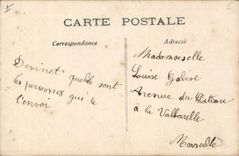 CARTE POSTALE
Correspondance
Devinet quelle sont
les personnes qui te
l'envoi
Adresse
Mademoiselle
Louise
Avenue du Plateau
à la Valbarelle
Marseille